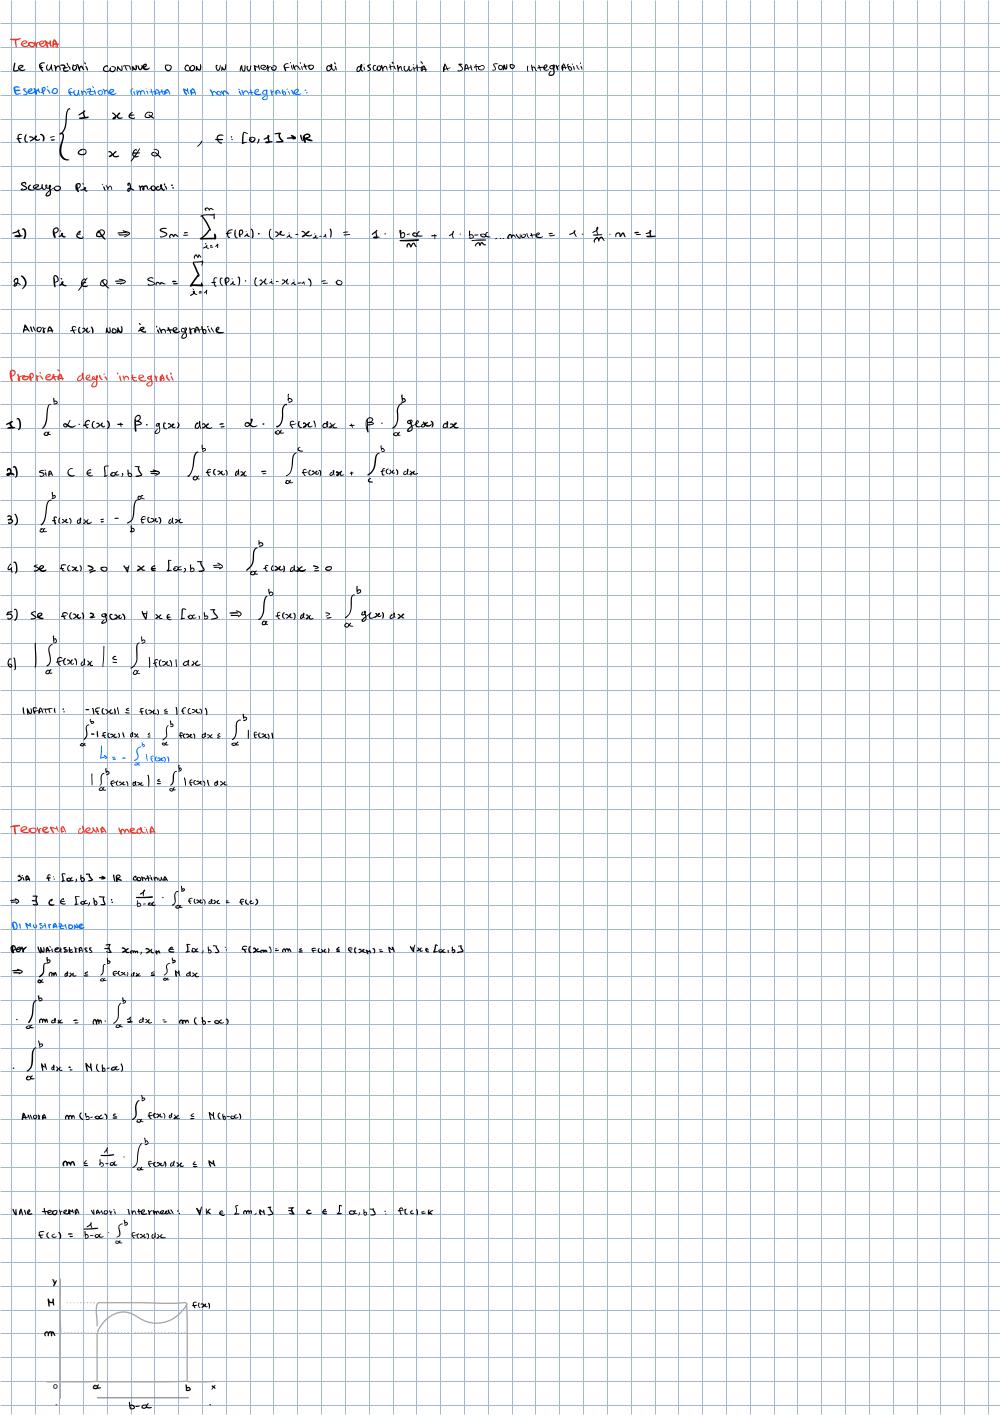 Teorema
Le funzioni continue o con un numero finito di discontinuità a salto sono integrabili
Esempio funzione limitata ma non integrabile:
f(x) = { 1 x ∈ Q
0 x ∉ Q , f: [0,1] → ℝ
Scelgo Pi in 2 modi:
1) Pi ∈ Q ⇒ Sn = ∑_{i=1}^{n} f(Pi)·(xi-xi-1) = 1· (b-a)/n + 1· (b-a)/n ... n volte = 1· 1/n · n = 1
2) Pi ∉ Q ⇒ Sn = ∑_{i=1}^{n} f(Pi)·(xi-xi-1) = 0
Allora f(x) non è integrabile
Proprietà degli integrali
1) ∫_a^b α·f(x) + β·g(x) dx = α · ∫_a^b f(x) dx + β · ∫_a^b g(x) dx
2) sia c ∈ [a,b] ⇒ ∫_a^b f(x) dx = ∫_a^c f(x) dx + ∫_c^b f(x) dx
3) ∫_a^b f(x) dx = - ∫_b^a f(x) dx
4) se f(x) ≥ 0 ∀ x ∈ [a,b] ⇒ ∫_a^b f(x) dx ≥ 0
5) se f(x) ≥ g(x) ∀ x ∈ [a,b] ⇒ ∫_a^b f(x) dx ≥ ∫_a^b g(x) dx
6) | ∫_a^b f(x) dx | ≤ ∫_a^b |f(x)| dx
Infatti: -|f(x)| ≤ f(x) ≤ |f(x)|
∫_a^b -|f(x)| dx ≤ ∫_a^b f(x) dx ≤ ∫_a^b |f(x)|
↳ = - ∫_a^b |f(x)|
| ∫_a^b f(x) dx | ≤ ∫_a^b |f(x)| dx
Teorema della media
Sia f: [a,b] → ℝ continua
⇒ ∃ c ∈ [a,b] : 1/(b-a) · ∫_a^b f(x) dx = f(c)
Dimostrazione
Per Waierstrass ∃ xm, xM ∈ [a,b] : f(xm) = m ≤ f(x) ≤ f(xM) = M ∀x ∈ [a,b]
⇒ ∫_a^b m dx ≤ ∫_a^b f(x) dx ≤ ∫_a^b M dx
· ∫_a^b m dx = m· ∫_a^b 1 dx = m (b-a)
· ∫_a^b M dx = M(b-a)
Allora m (b-a) ≤ ∫_a^b f(x) dx ≤ M(b-a)
m ≤ 1/(b-a) · ∫_a^b f(x) dx ≤ M
Vale teorema valori intermedi: ∀K ∈ [m,M] ∃ c ∈ [a,b] : f(c)=K
f(c) = 1/(b-a) · ∫_a^b f(x) dx
y
M f(x)
m
0 a b x
b-a